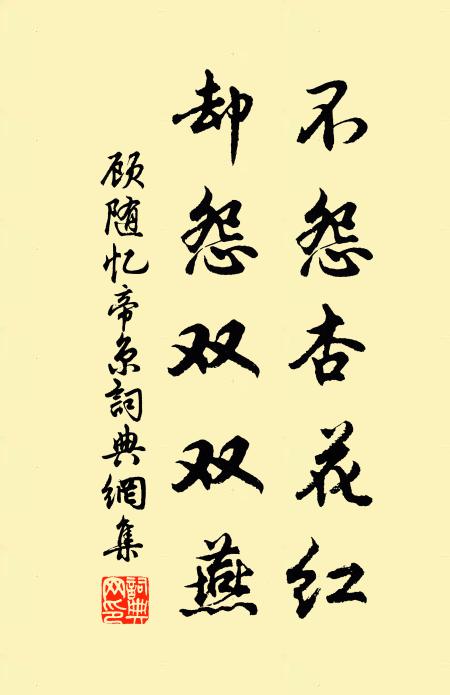 不怨杏花红
却怨双双燕
顾随忆帝京詞典網集
詞典網印